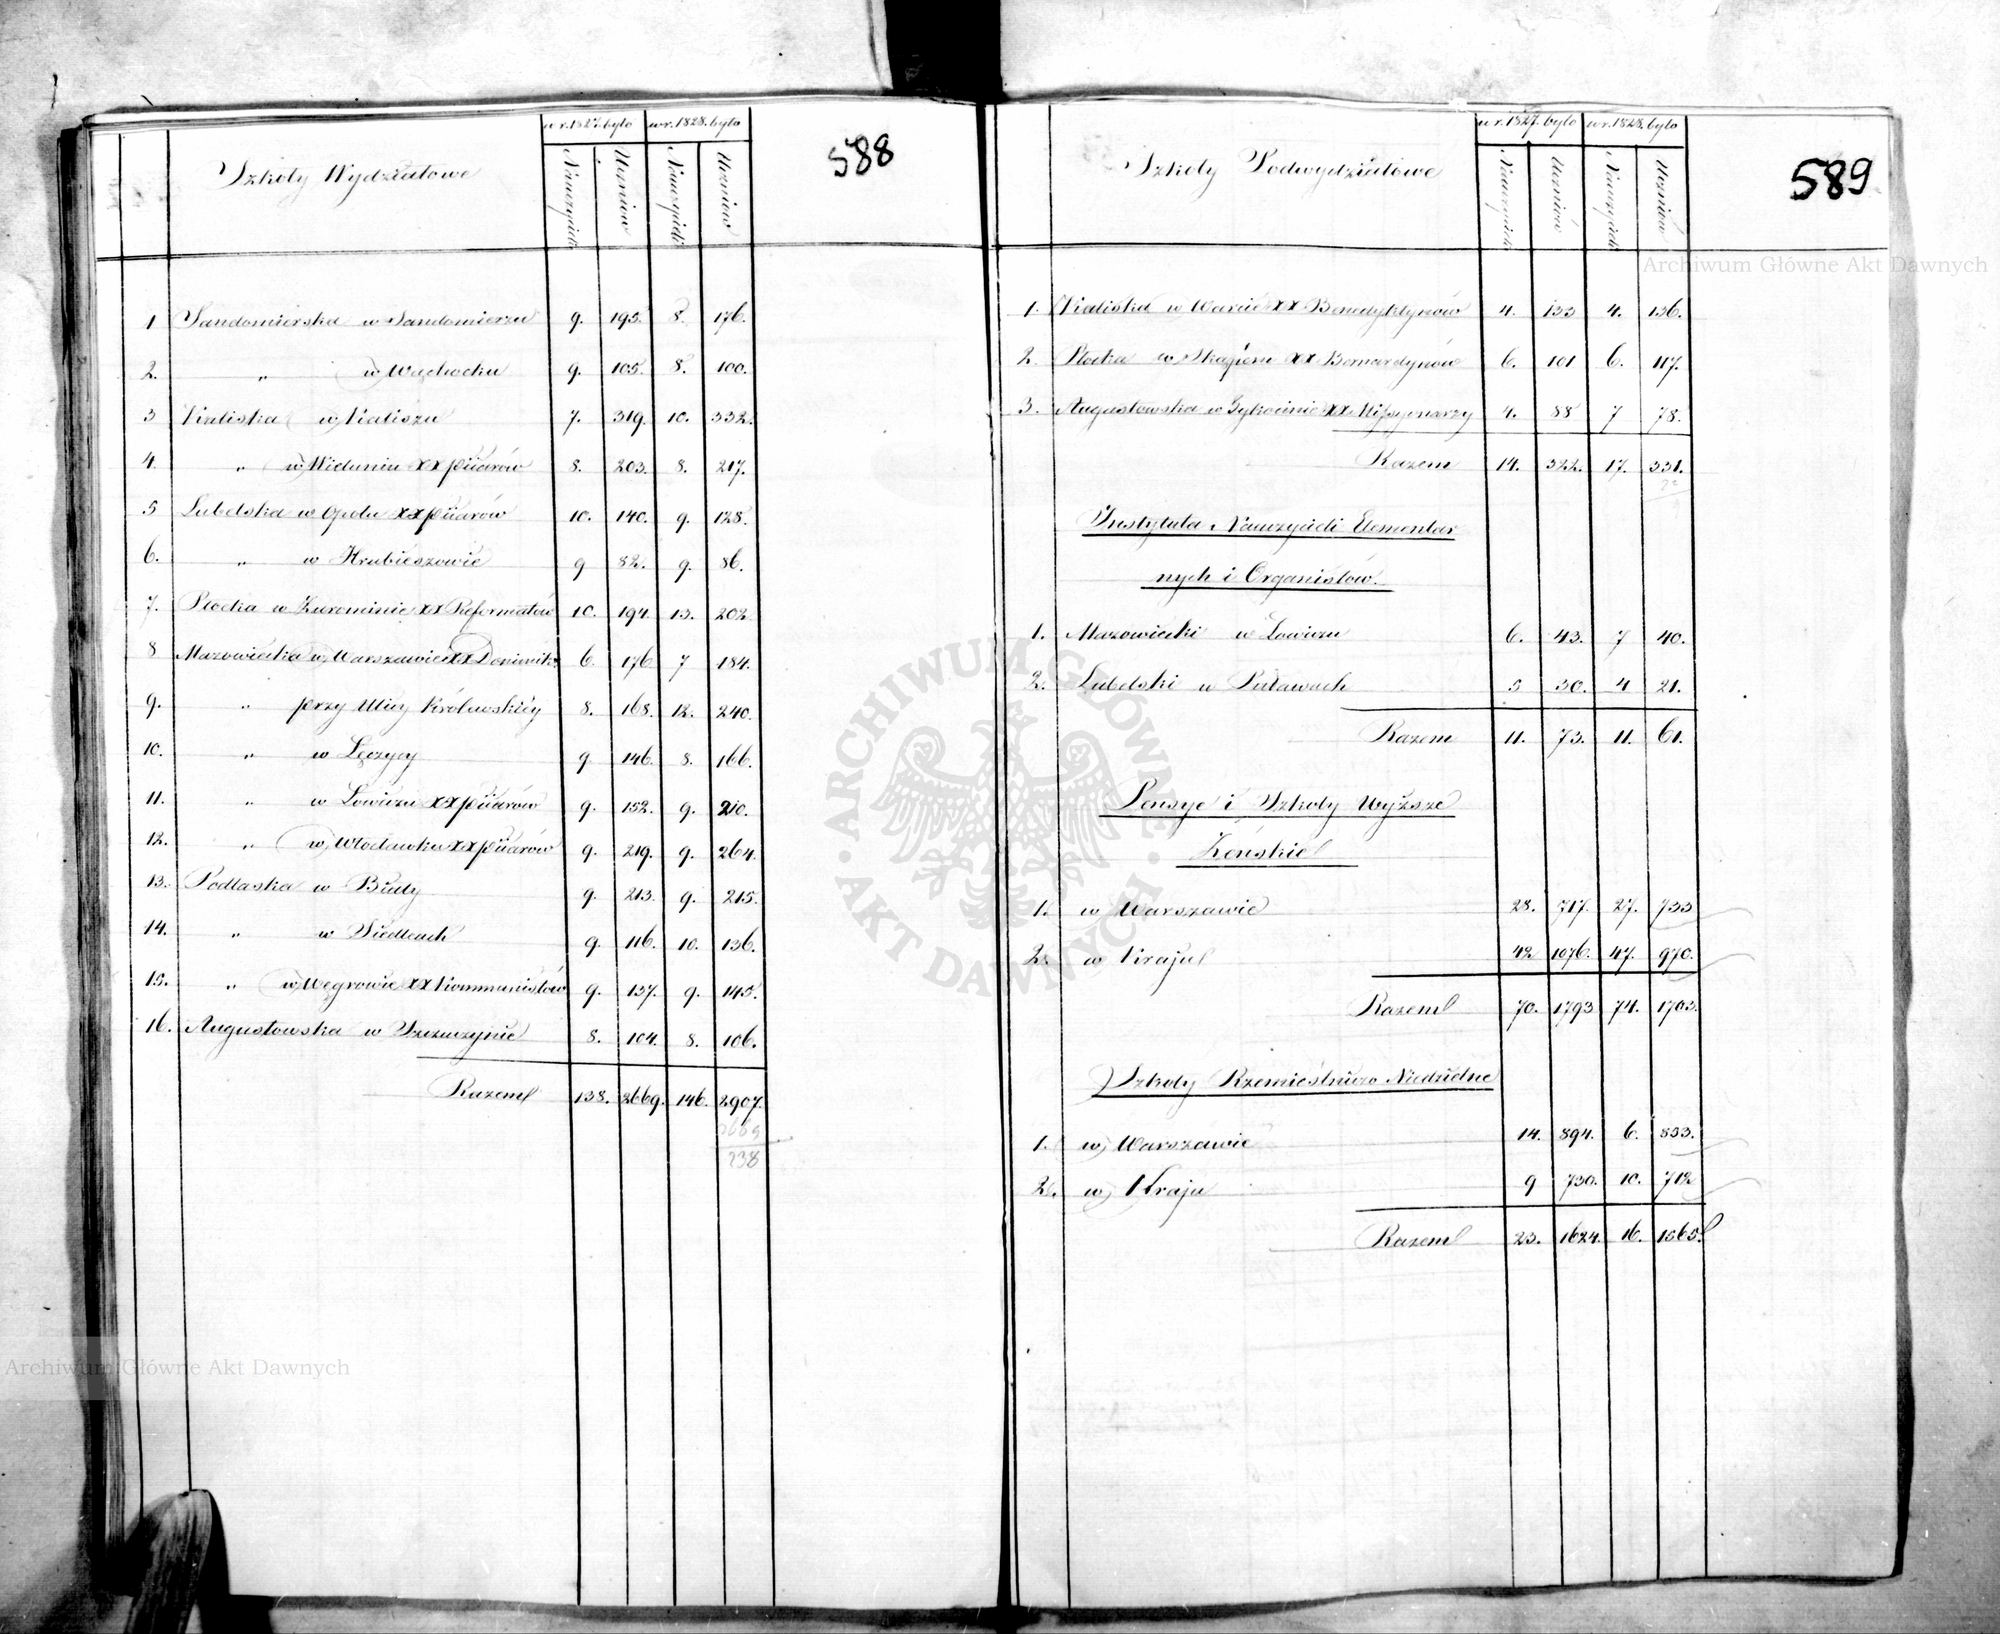 w r. 1827. było w r. 1828. było
Szkoły Wydziałowe
Nauczycieli Uczniów Nauczycieli Uczniów
588
1 Sandomierska w Sandomierzu 9. 195. 8. 176.
2. " w Wąchocku 9. 105. 8. 100.
3 Kaliska w Kaliszu 7. 319. 10. 332.
4. " w Wieluniu XX Piiarów 8. 203. 8. 217.
5 Lubelska w Opolu XX Piiarów 10. 140. 9. 128.
6. " w Hrubieszowie 9 82. 9. 86.
7. Płocka w Żurominie XX Reformatów 10. 194. 13. 202.
8 Mazowiecka w Warszawie XX Dominik. 6. 176. 7 184.
9. " przy Ulicy Królewskiéy 8. 168. 12. 240.
10. " w Łęczycy 9 146. 8. 166.
11. " w Łowiczu XX Piiarów 9. 152. 9. 210.
12. " w Włocławku XX Piiarów 9. 219. 9. 264.
13. Podlaska w Biały 9. 213. 9. 215.
14. " w Siedlcach 9. 116. 10. 136.
15. " w Węgrowie XX Kommunistów 9. 137. 9. 145.
16. Augustowska w Szczuczynie 8. 104. 8. 106.
Razem 138. 2669. 146. 2907.
2669
238
w r. 1827. było w r. 1828. było
Szkoły Podwydziałowe
Nauczycieli Uczniów Nauczycieli Uczniów
589
1. Kaliska w Warcie XX Benedyktynów 4. 133 4. 136.
2. Płocka w Skępem XX Bernardynów 6. 101 6. 117.
3. Augustowska w Tykocinie XX Missyonarzy 4. 88 7 78.
Razem 14. 322. 17. 331.
Instytuta Nauczycieli Elementar
nych i Organistów.
1. Mazowiecki w Łowiczu 6. 43. 7 40.
2. Lubelski w Puławach 5 30. 4 21.
Razem 11. 73. 11. 61.
Pensye i Szkoły Wyższe
Żeńskie
1. w Warszawie 28. 717. 27. 733
2. w Kraju 42 1076. 47. 970.
Razem 70. 1793 74. 1703.
Szkoły Rzemieślniczo Niedzielne
1. w Warszawie 14. 894. 6. 853.
2. w Kraju 9 730. 10. 712
Razem 23. 1624. 16. 1565.
Archiwum Główne Akt Dawnych
ARCHIWUM GŁÓWNE AKT DAWNYCH
Archiwum Główne Akt Dawnych